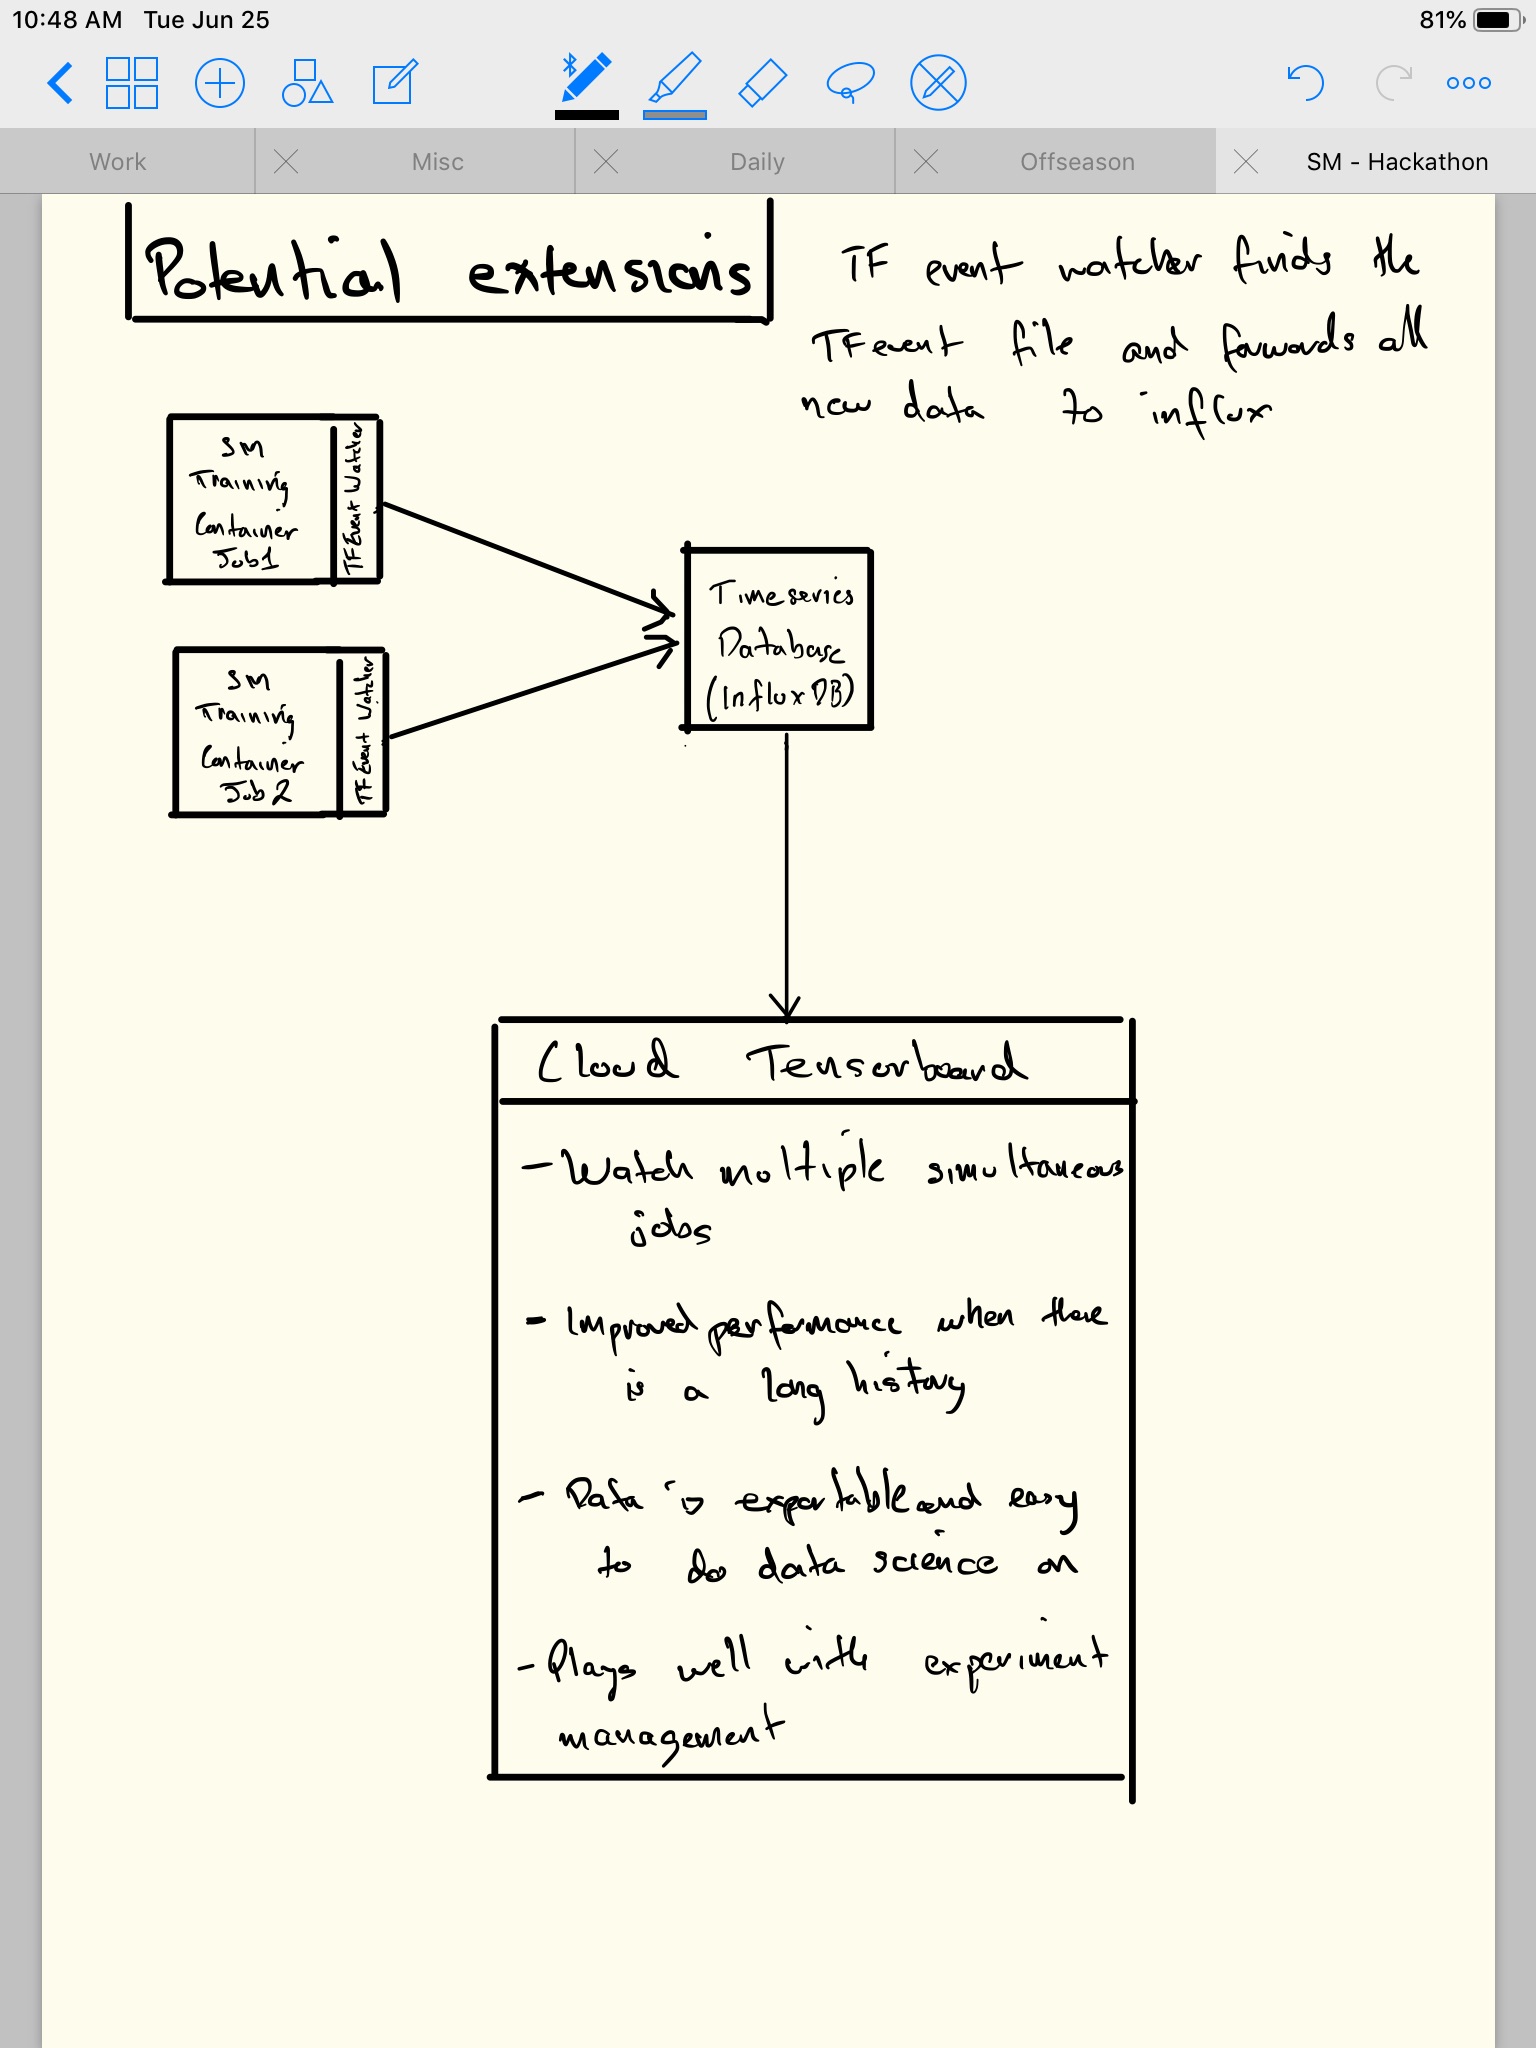 10:48 AM Tue Jun 25
81%
Work
Misc
Daily
Offseason
SM - Hackathon
Potential extensions
TF event watcher finds the
TF event file and forwards all
new data to influx
SM
Training
Container
Job1
TF Event Watcher
SM
Training
Container
Job 2
TF Event Watcher
Timeseries
Database
(Influx DB)
Cloud Tensorboard
- Watch multiple simultaneous
jobs
- Improved performance when there
is a long history
- Data is exportable and easy
to do data science on
- Plays well with experiment
management